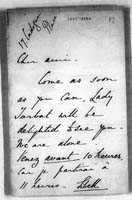 17 Cadogan
Place
Cher ami.
Come as soon
as you can. Lady
Tarbat will be
delighted to see you
We are alone.
Venez avant 10 heures,
car je partirai à
11 heures.